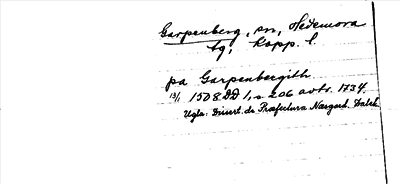 Garpenberg, sn, Hedemora
tg, Kopp. l.
pa Garpenbergith
13/1 1508 DD 1, s 206 avtr. 1734.
Ugla: Dissert. de Præfectura Næsgard. Dalek